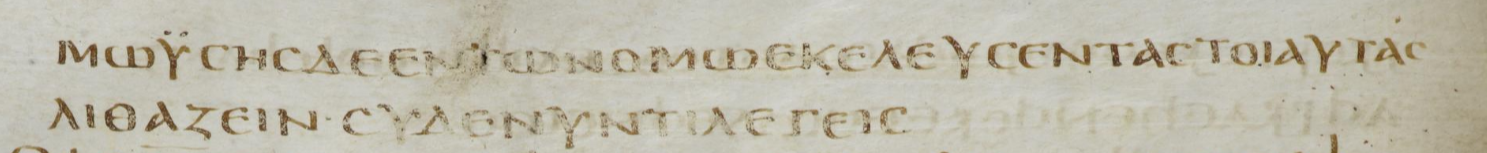 ΜωΫϹΗϹΔΕΕΝΤωΝΟΜωΕΚΕΛΕΥϹΕΝΤΑϹΤΟΙΑΥΤΑϹ
ΛΙΘΑΖΕΙΝ·ϹΥΔΕΝΥΝΤΙΛΕΓΕΙϹ